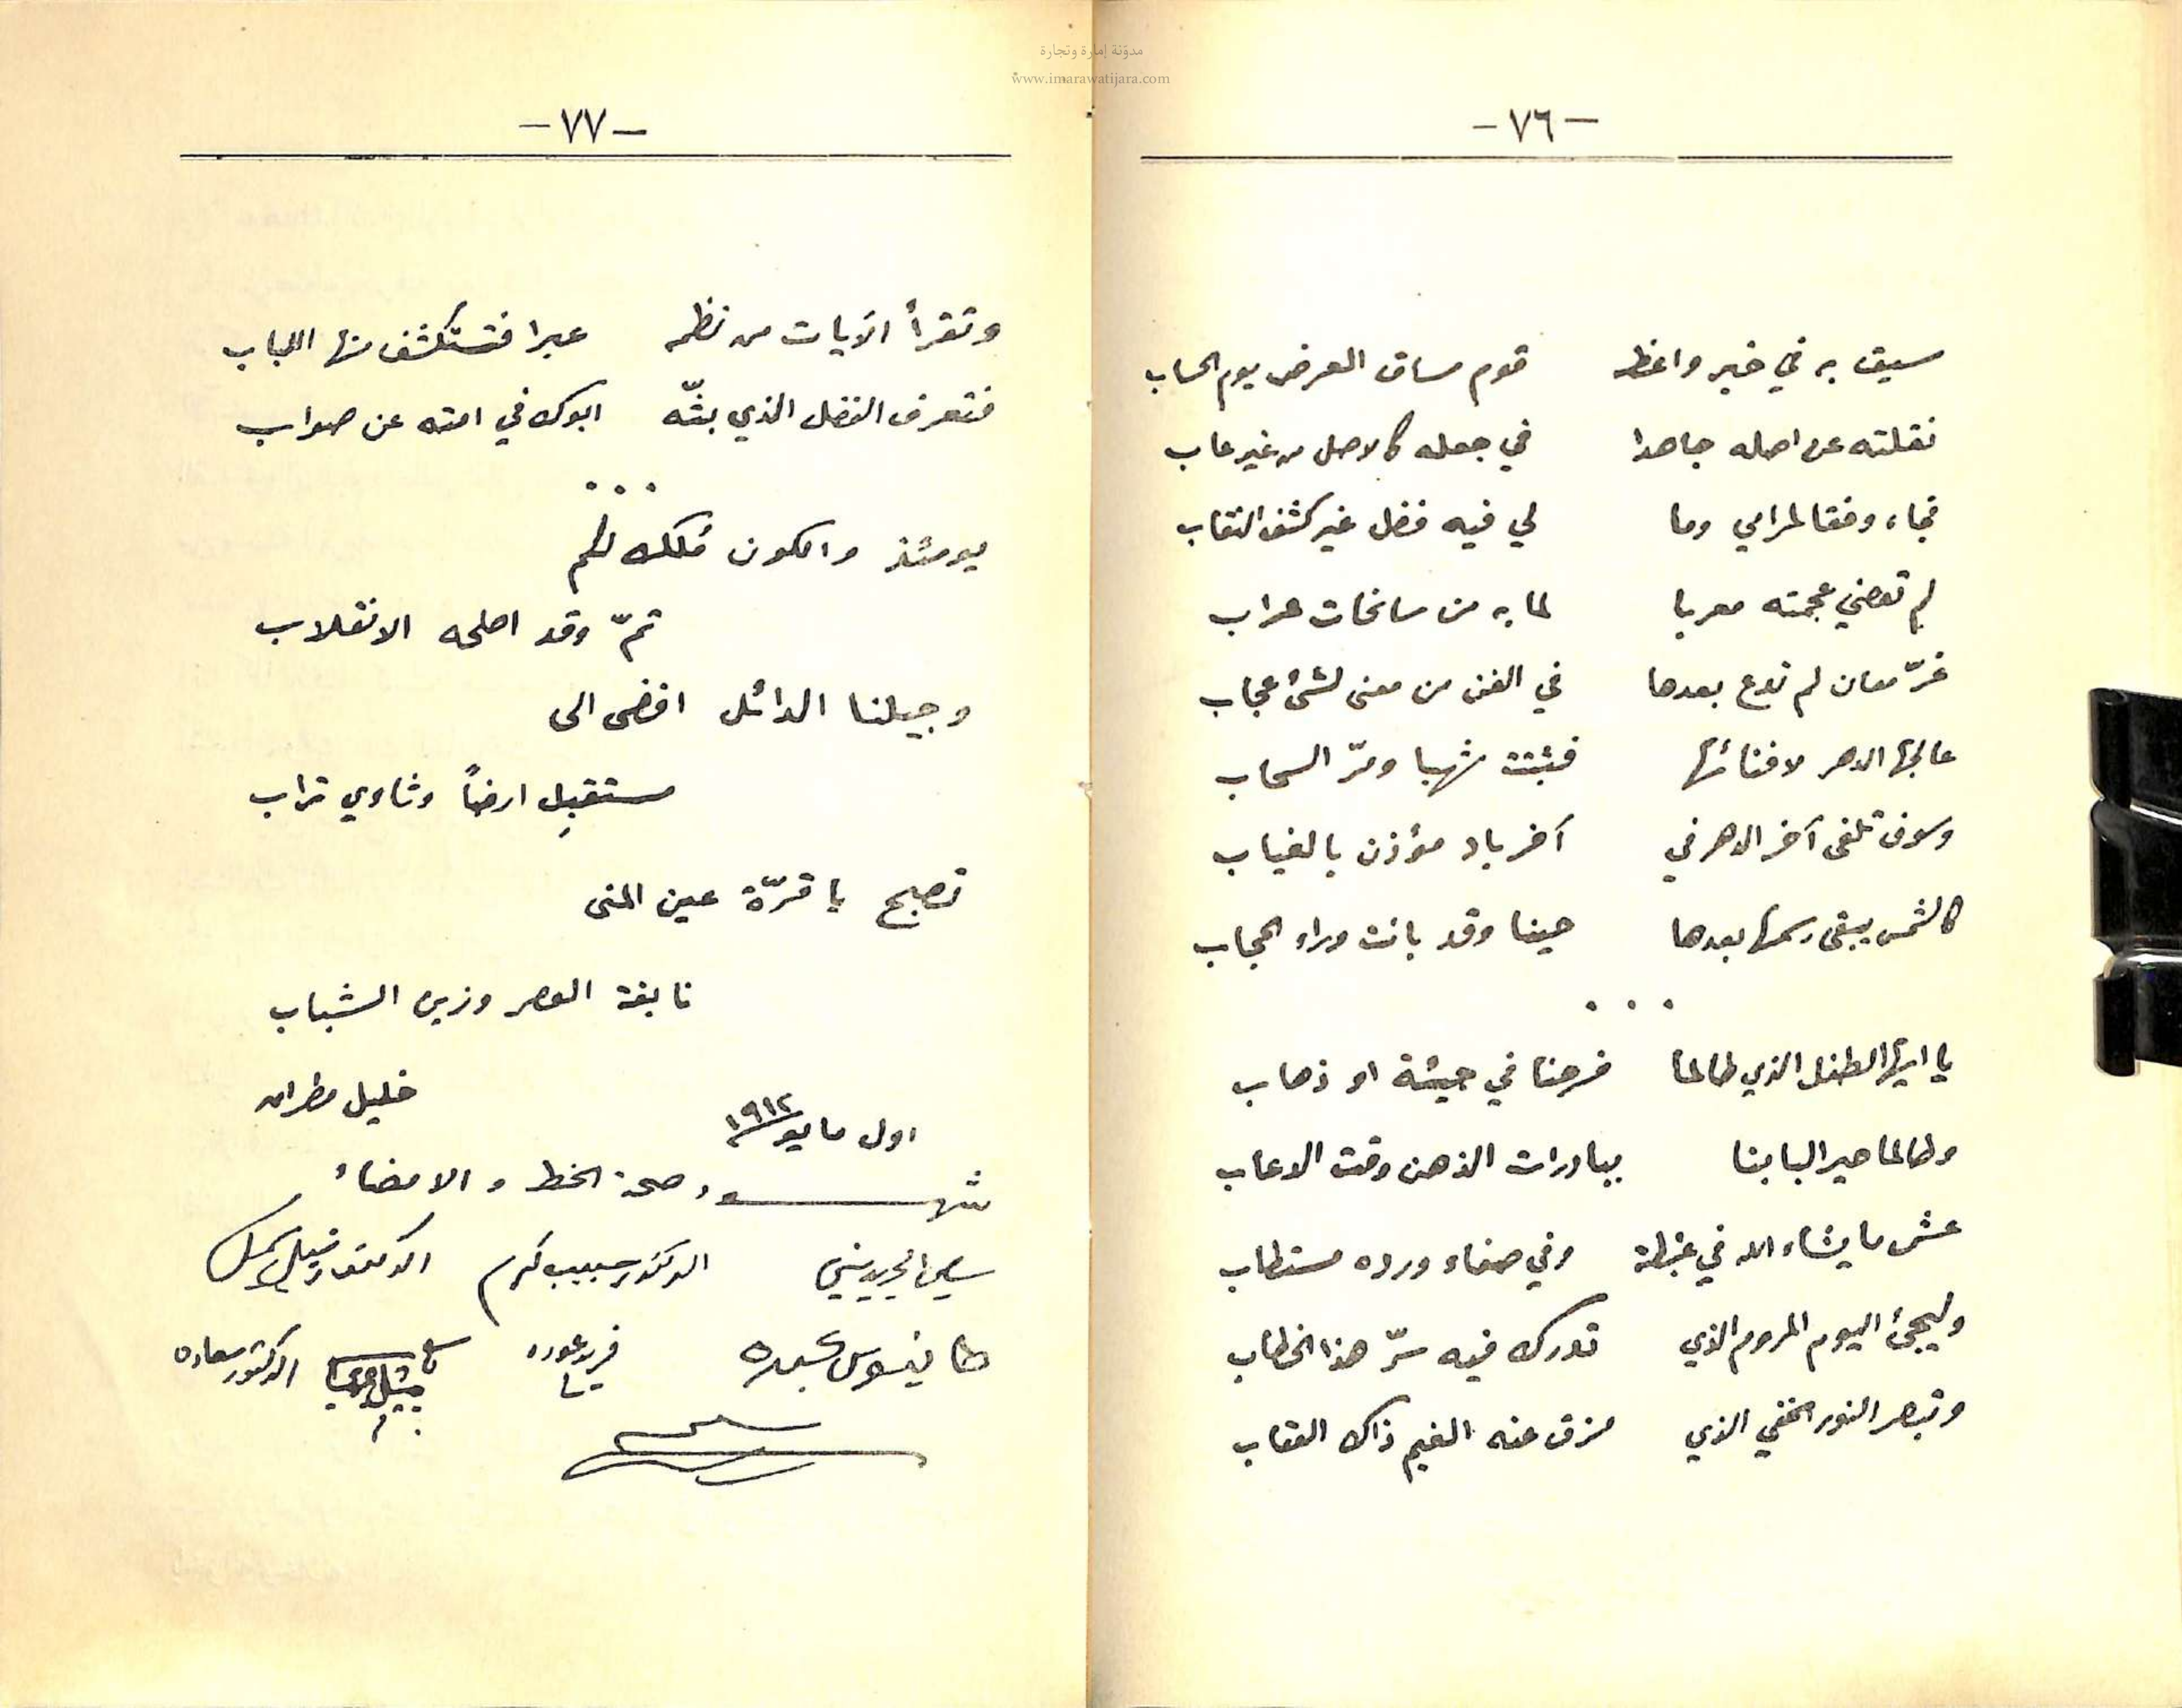 مدوّنة إمارة وتجارة
www.imarawatijara.com
- ٧٦ -
سيق به في خير واعظ قوم مساق العرض يوم الحساب
نقلته عن اصله جاهدا في جعله كالاصل من غير عاب
فجاء وفقا لمرامي وما لي فيه فضل غير كشف النقاب
لم تعصني عجمته معربا لما به من سانحات عراب
غرّ معان لم تدع بعدها في الفن من معنى لشئ عجاب
عالجها الدهر لافنائها فثبتت شهبا ومرّ السحاب
وسوف تلفى آخر الدهر في آخر باد مؤذن بالغياب
كالشمس يبقى رسمها بعدها حينا وقد بانت وراء الحجاب
. . .
يا ايها الطفل الذي طالما فرحنا في جيئة او ذهاب
وطالما حير البابنا ببادرات الذهن وقت الدعاب
عش ما يشاء الله في غبطة وفي صفاء ورده مستطاب
وليجئ اليوم المروم الذي تدرك فيه سرّ هذا الخطاب
وتبصر النور الخفي الذي مزق عنه الغيم ذاك العقاب
- ٧٧ -
وتقرأ الآيات من نظمه عبرا فتستكشف منها اللباب
فتعرف الفضل الذي بثّه ابوك في امته عن صواب
. . .
يومئذ والكون مُلك لكم
تمّ وقد اصلحه الانقلاب
وجيلنا الدائل افضى الى
مستقبِل ارضاً وثاوي تراب
تصبح يا قرّة عين المنى
نابغة العصر وزين الشباب
خليل مطران
اول مايو ١٩١٢
شهود صحة الخط والامضاء
سامي الجريديني الدكتور حبيب كرم الدكتور شبلي شميل
طانيوس عبده فريد عوده الدكتور سعاده